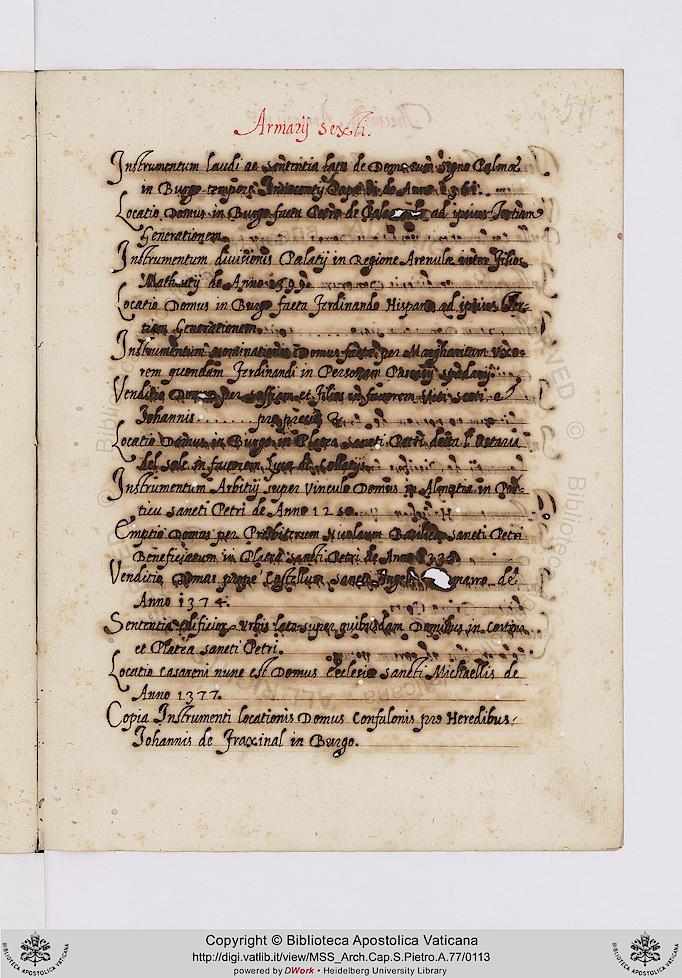 54
Armarij Sexti.
Instrumentum laudi ac sententia lata de Domo cum signo Palmæ
in Burgo tempore Innocentij Papæ vi de Anno 1361.
Locatio Domus in Burgo facta Petro de ad ipsius Tertiam
Generationem
Instrumentum divisionis Palatij in Regione Arenulæ inter filios
Matheutij de Anno 1399
Locatio Domus in Burgo facta Ferdinando Hispano ad ipsius Ter-
tiam Generationem
Instrumentum nominationis Domus factæ per Margharitam Uxo-
rem quondam Ferdinandi in Personam
Venditio per et filios in favorem
Johannis ...... pro precio &
Locatio Domus in Burgo in Platea Sancti Petri detta l'Ostaria
del sole in favorem Lucæ de
Instrumentum Arbitrij super vinculo Domus in in Por-
ticu Sancti Petri de Anno 12
Emptio Domus per Presbiterum Nicolaum Basilicæ Sancti Petri
Beneficiatum in Platea Sancti Petri de Anno
Venditio Domus prope Castellum Sancti Angeli de
Anno 1374.
Sententia Ædificior. Urbis lata super quibusdam Domibus in Cortina
et Platea Sancti Petri.
Locatio Casareni nunc est Domus Ecclesiæ Sancti Michaellis de
Anno 1377.
Copia Instrumenti locationis Domus Confalonis pro Heredibus
Johannis de Fraxinal in Burgo.
Copyright © Biblioteca Apostolica Vaticana
http://digi.vatlib.it/view/MSS_Arch.Cap.S.Pietro.A.77/0113
powered by DWork • Heidelberg University Library